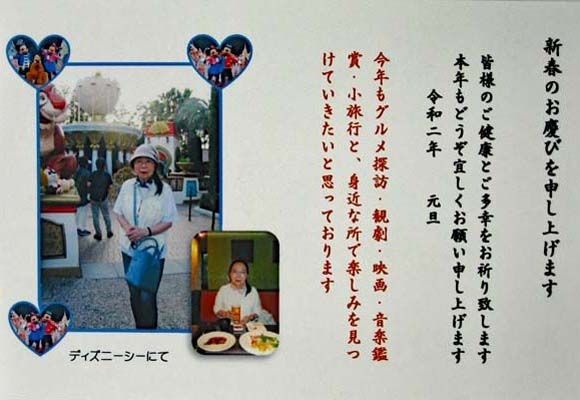 新春のお慶びを申し上げます
皆様のご健康とご多幸をお祈り致します
本年もどうぞ宜しくお願い申し上げます
令和二年 元旦
今年もグルメ探訪・観劇・映画・音楽鑑
賞・小旅行と、身近な所で楽しみを見つ
けていきたいと思っております
ディズニーシーにて